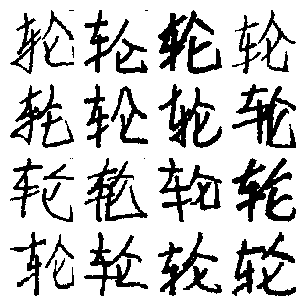 轮轮轮轮
轮轮轮轮
轮轮轮轮
轮轮轮轮